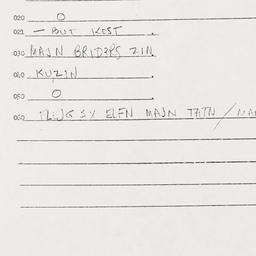 020 O
021 – BUT KOST .
030 MAJN BRIDERS ZIN.
040 KUZIN .
050 O .
060 SY ELFN MAJN TATN / MA